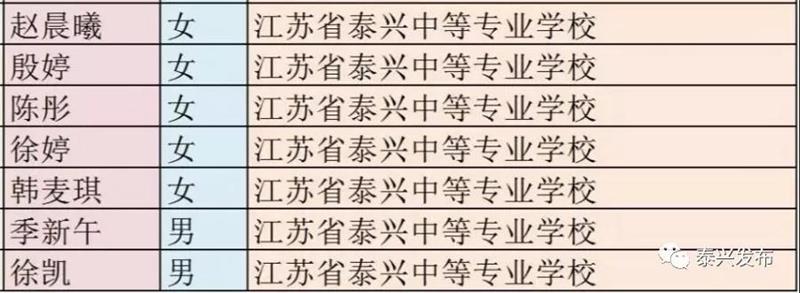 赵晨曦 女 江苏省泰兴中等专业学校
殷婷 女 江苏省泰兴中等专业学校
陈彤 女 江苏省泰兴中等专业学校
徐婷 女 江苏省泰兴中等专业学校
韩麦琪 女 江苏省泰兴中等专业学校
季新午 男 江苏省泰兴中等专业学校
徐凯 男 江苏省泰兴中等专业学校
泰兴发布